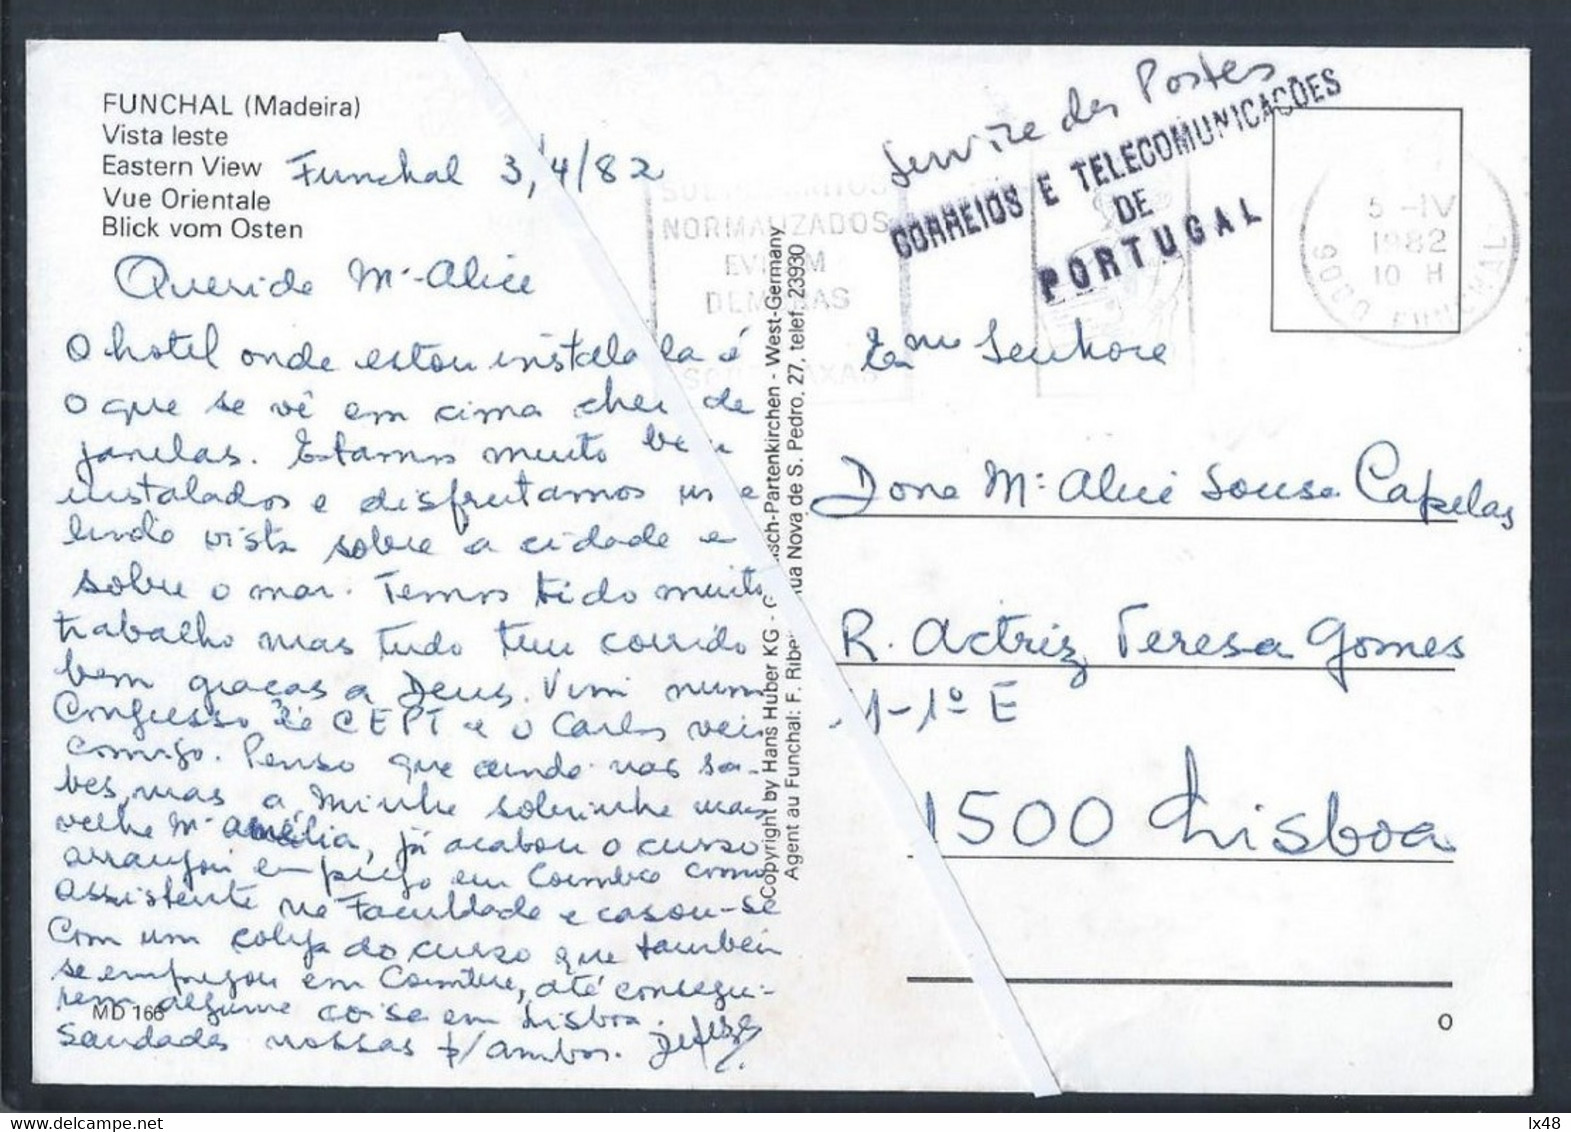 FUNCHAL (Madeira)
Vista leste
Eastern View
Vue Orientale
Blick vom Osten
Funchal 3/4/82
Querida Mª Alice
O hotel onde estou instalada é
o que se vê em cima cheio de
janelas. Estamos muito bem
instalados e disfrutamos uma
linda vista sobre a cidade e
sobre o mar. Temos tido muito
trabalho mas tudo tem corrido
bem graças a Deus. Vim num
Congresso CEPT e o Carlos veio
comigo. Penso que ainda não sa-
bes, mas a minha sobrinha mais
velha Mª Amélia, já acabou o curso
arranjou emprego em Coimbra como
assistente na Faculdade e casou-se
com um colega do curso que também
se empregou em Coimbra, até consegui-
rem alguma coisa em Lisboa.
Saudades nossas p/ ambos.
MD 166
Copyright by Hans Huber KG - -Partenkirchen - West-Germany
Agent au Funchal: F. Nova de S. Pedro, 27, telef. 23930
NORMALIZADOS
EVITAM
DEMORAS
Service des Postes
CORREIOS E TELECOMUNICAÇÕES
DE
PORTUGAL
5 -IV
1982
10 H
9000 FUNCHAL
Exma Senhora
Dona Mª Alice Sousa Capelas
R. Actriz Teresa Gomes
1-1º E
1500 Lisboa
O